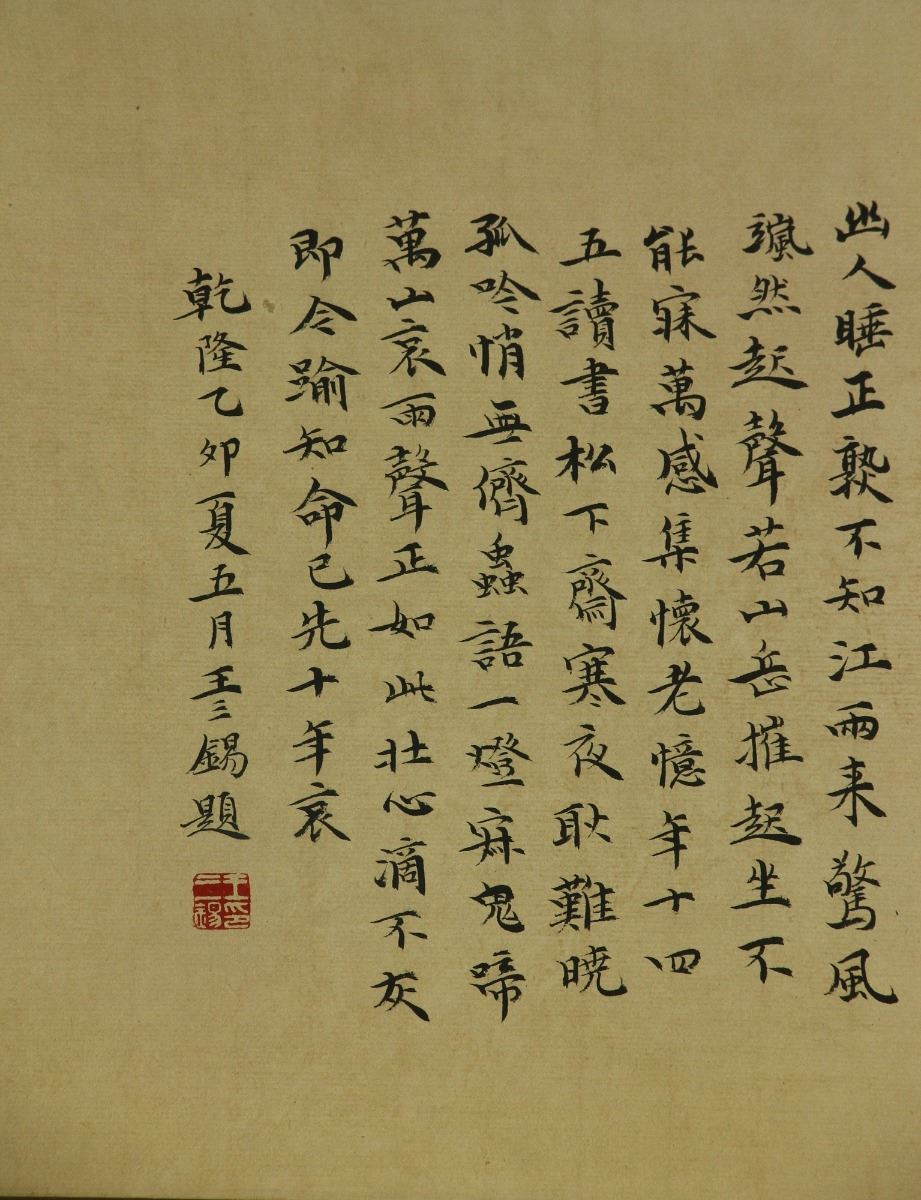 幽人睡正孰不知江雨来驚風
颯然起聲若山岳摧起坐不
能寐萬感集懷老憶年十四
五讀書松下齋寒夜耿難曉
孤吟悄無儕蟲語一燈寂鬼啼
萬山哀雨聲正如此壯心滴不灰
即今踰知命已先十年衰
乾隆乙卯夏五月王三錫題
王三錫印